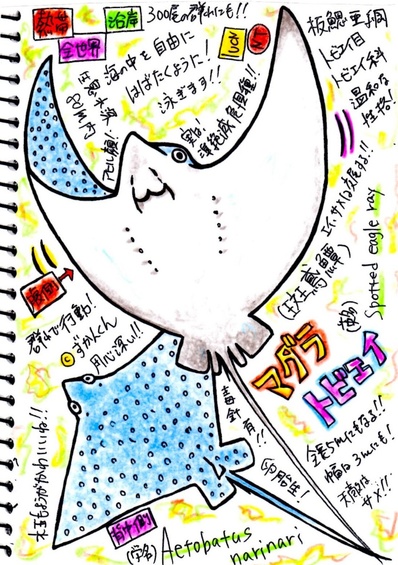 熱帯
沿岸
300尾の群れにも!!
全世界
海の中を自由に
はばたくように!
泳ぎます!!
IUCN
NT
実は
準絶滅危惧種!!
板鰓亜綱
トビエイ目
トビエイ科
温和な
性格!
アヒル顔!
腹側
群れで行動!
©ずかんくん
用心深い!!
水玉もようがかわいいね!!
(英名) Spotted eagle ray
マダラ
トビエイ
毒
針有!!
卵胎生!
全長5mにもなる!!
幅は3mにも!
天敵は
サメ!!
背中側
(学名) Aetobatus
narinari